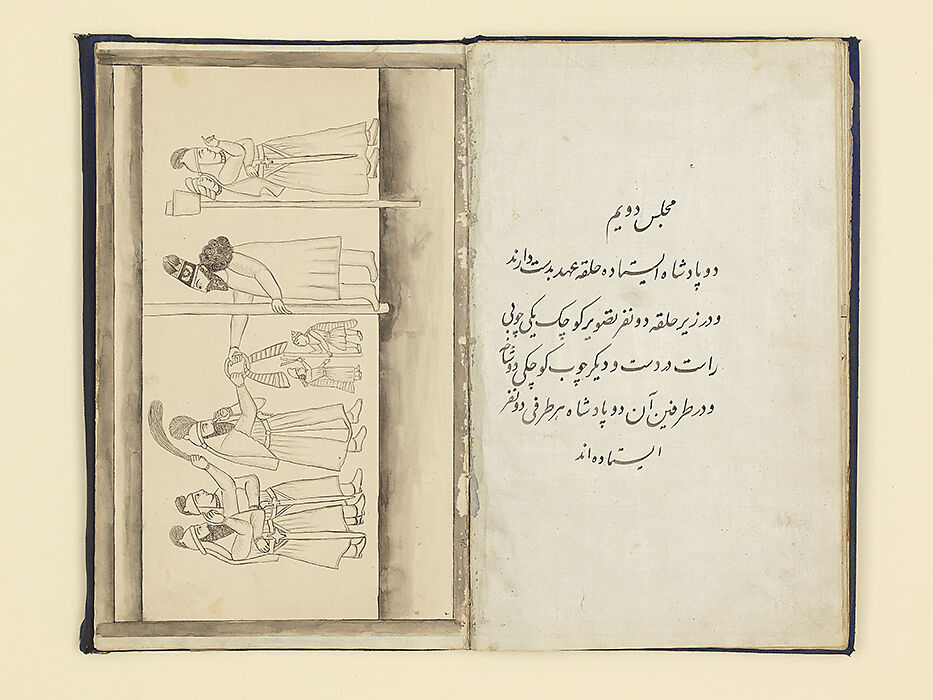 مجلس دویم
دو پادشاه ایستاده حلقه عهد بدست دارند
و در زیر حلقه دو نفر تصویر کوچک یکی چوبی
راست در دست و دیگر چوب کوچکی دوشاخه
و در طرفین آن دو پادشاه هر طرفی دو نفر
ایستاده اند